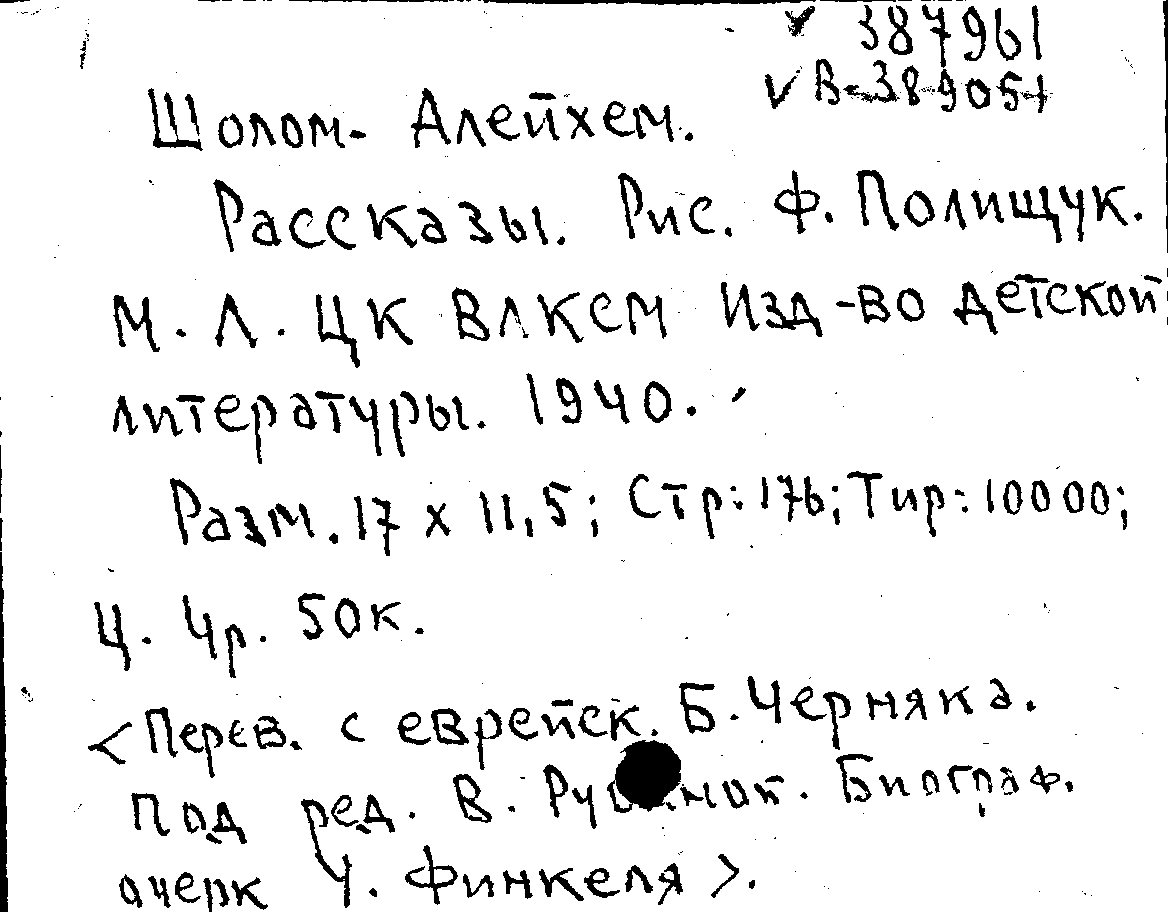 ✓ 387961
✓ В-389057
Шолом- Алейхем.
Рассказы. Рис. Ф. Полищук.
М. Л. ЦК ВЛКСМ Изд-во детской
литературы. 1940.
Разм. 17 х 11,5; Стр: 176; Тир: 10000;
Ц. 4р. 50к.
<Перев. с еврейск. Б. Черняка.
Под ред. В. Биограф.
очерк У. Финкеля>.